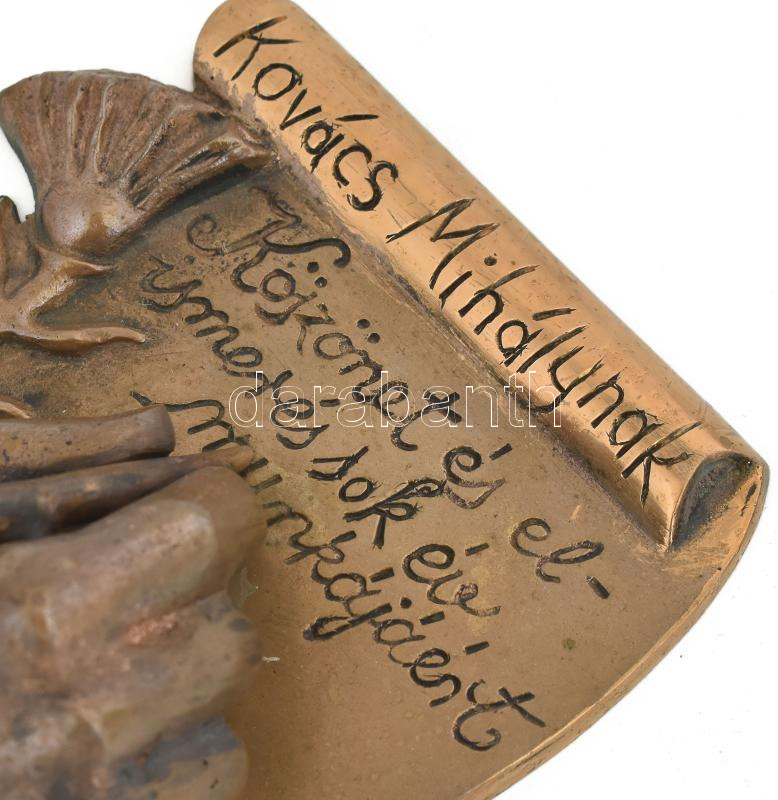 Kovács Mihálynak
Köszönet és el-
ismerés sok év
munkájáért
darabanth